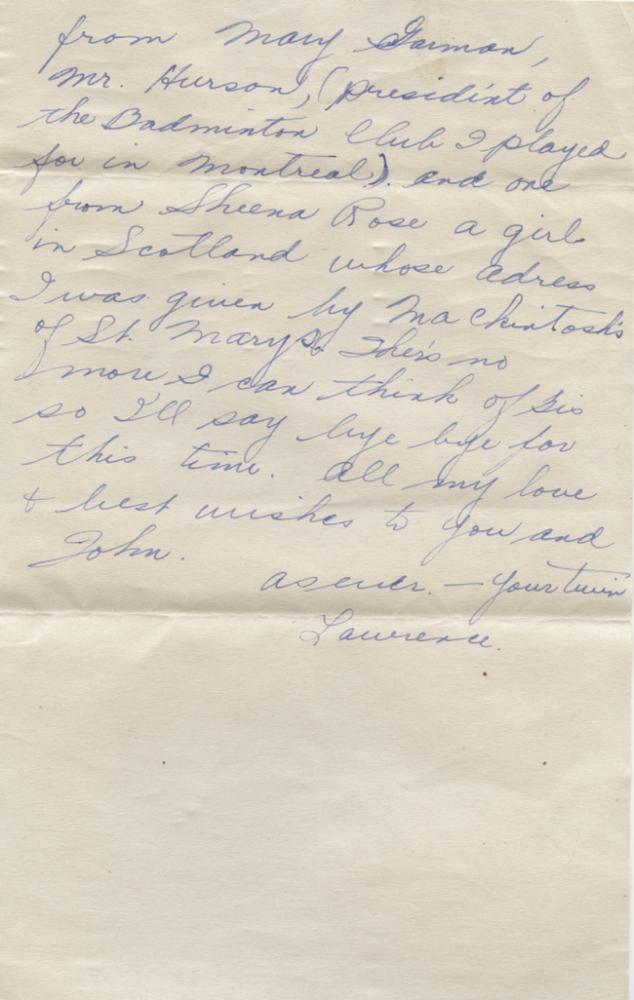 from Mary Garman,
Mr. Hurson, (presidint of
the Badminton Club I played
for in Montreal). and one
from Sheena Rose a girl
in Scotland whose adress
I was given by MacKintosh's
of St. Marys. Ther's no
more I can think of Sis
so I'll say bye bye for
this time. All my love
& best wishes to you and
John.
as ever. — Your twin
Lawrence.